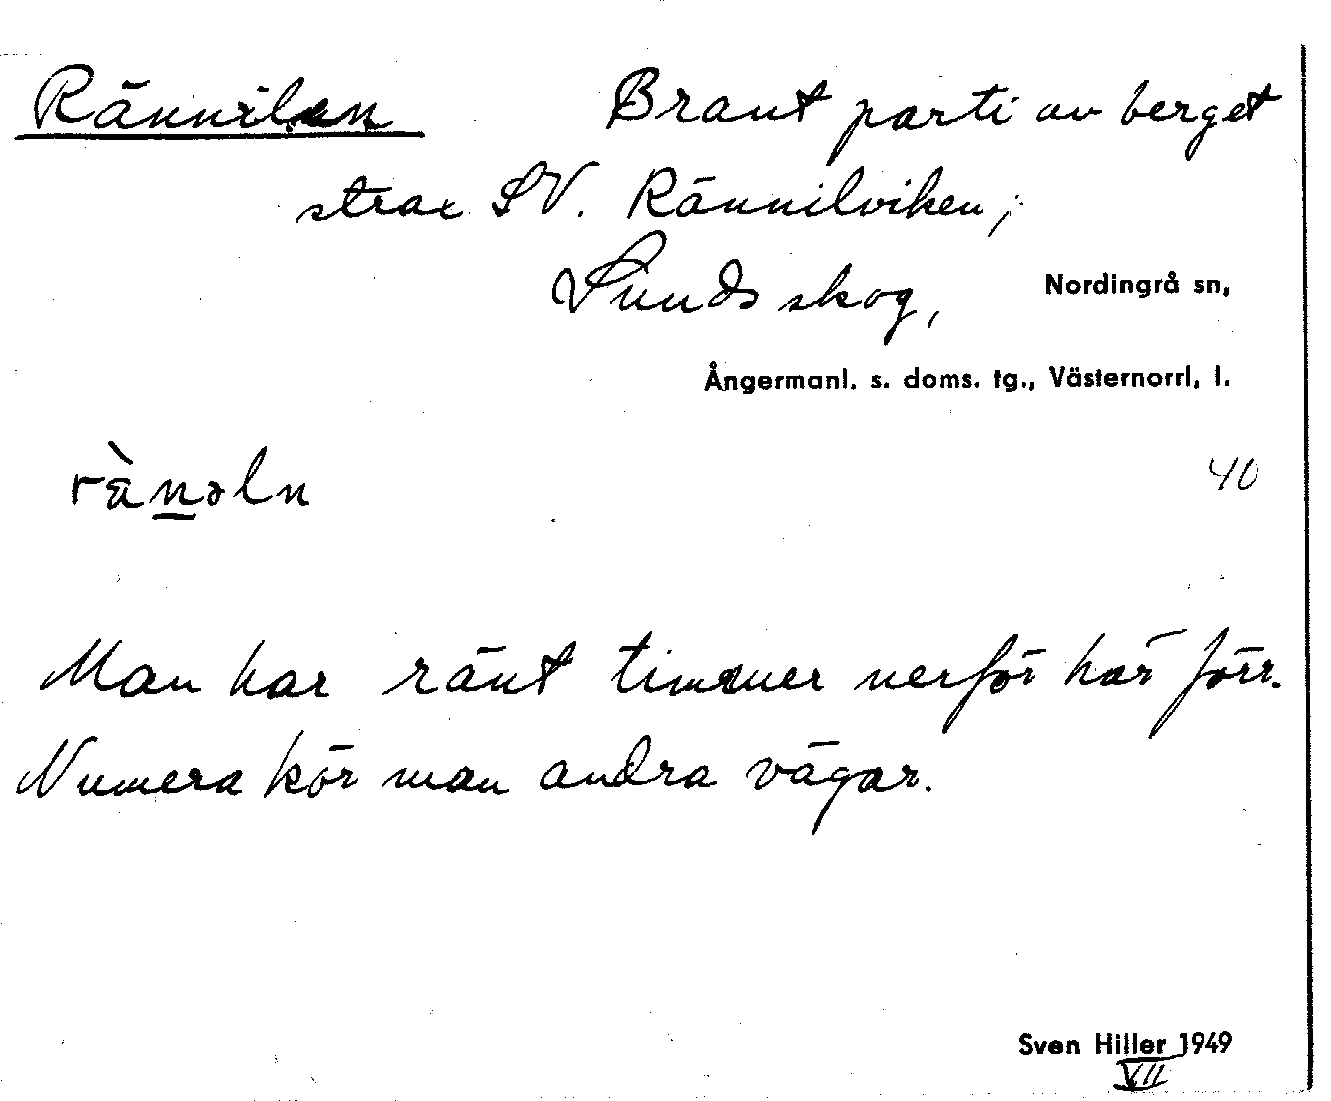 Rännilen Brant parti av berget
strax SV. Rännilviken;
Sunds skog, Nordingrå sn,
Ångermanl. s. doms. tg., Västernorrl. l.
rä̀nəln 40
Man har ränt timmer nerför här förr.
Numera kör man andra vägar.
Sven Hiller 1949
VII